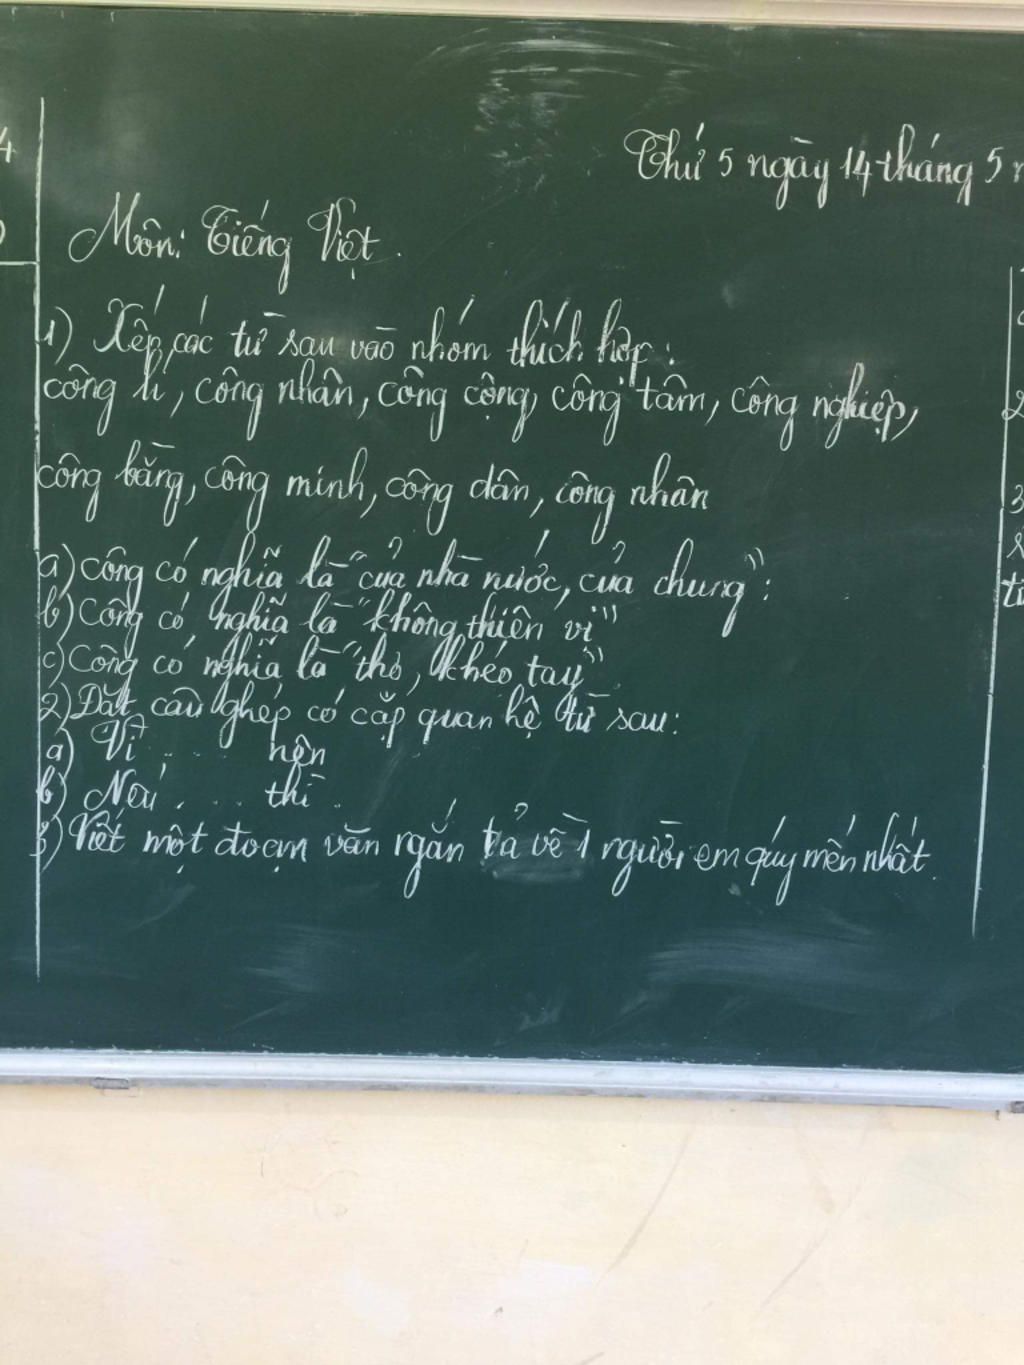 Thứ 5 ngày 14 tháng 5
Môn: Tiếng Việt.
1) Xếp các từ sau vào nhóm thích hợp:
công lí, công nhân, công cộng, công tâm, công nghiệp,
công bằng, công minh, công dân, công nhân
a) công có nghĩa là "của nhà nước, của chung":
b) Công có nghĩa là "không thiên vị"
c) Công có nghĩa là "thợ, khéo tay"
2) Đặt câu ghép có cặp quan hệ từ sau:
a) Vì .... nên
b) Nếu .... thì.
3) Viết một đoạn văn ngắn tả về 1 người em quý mến nhất.